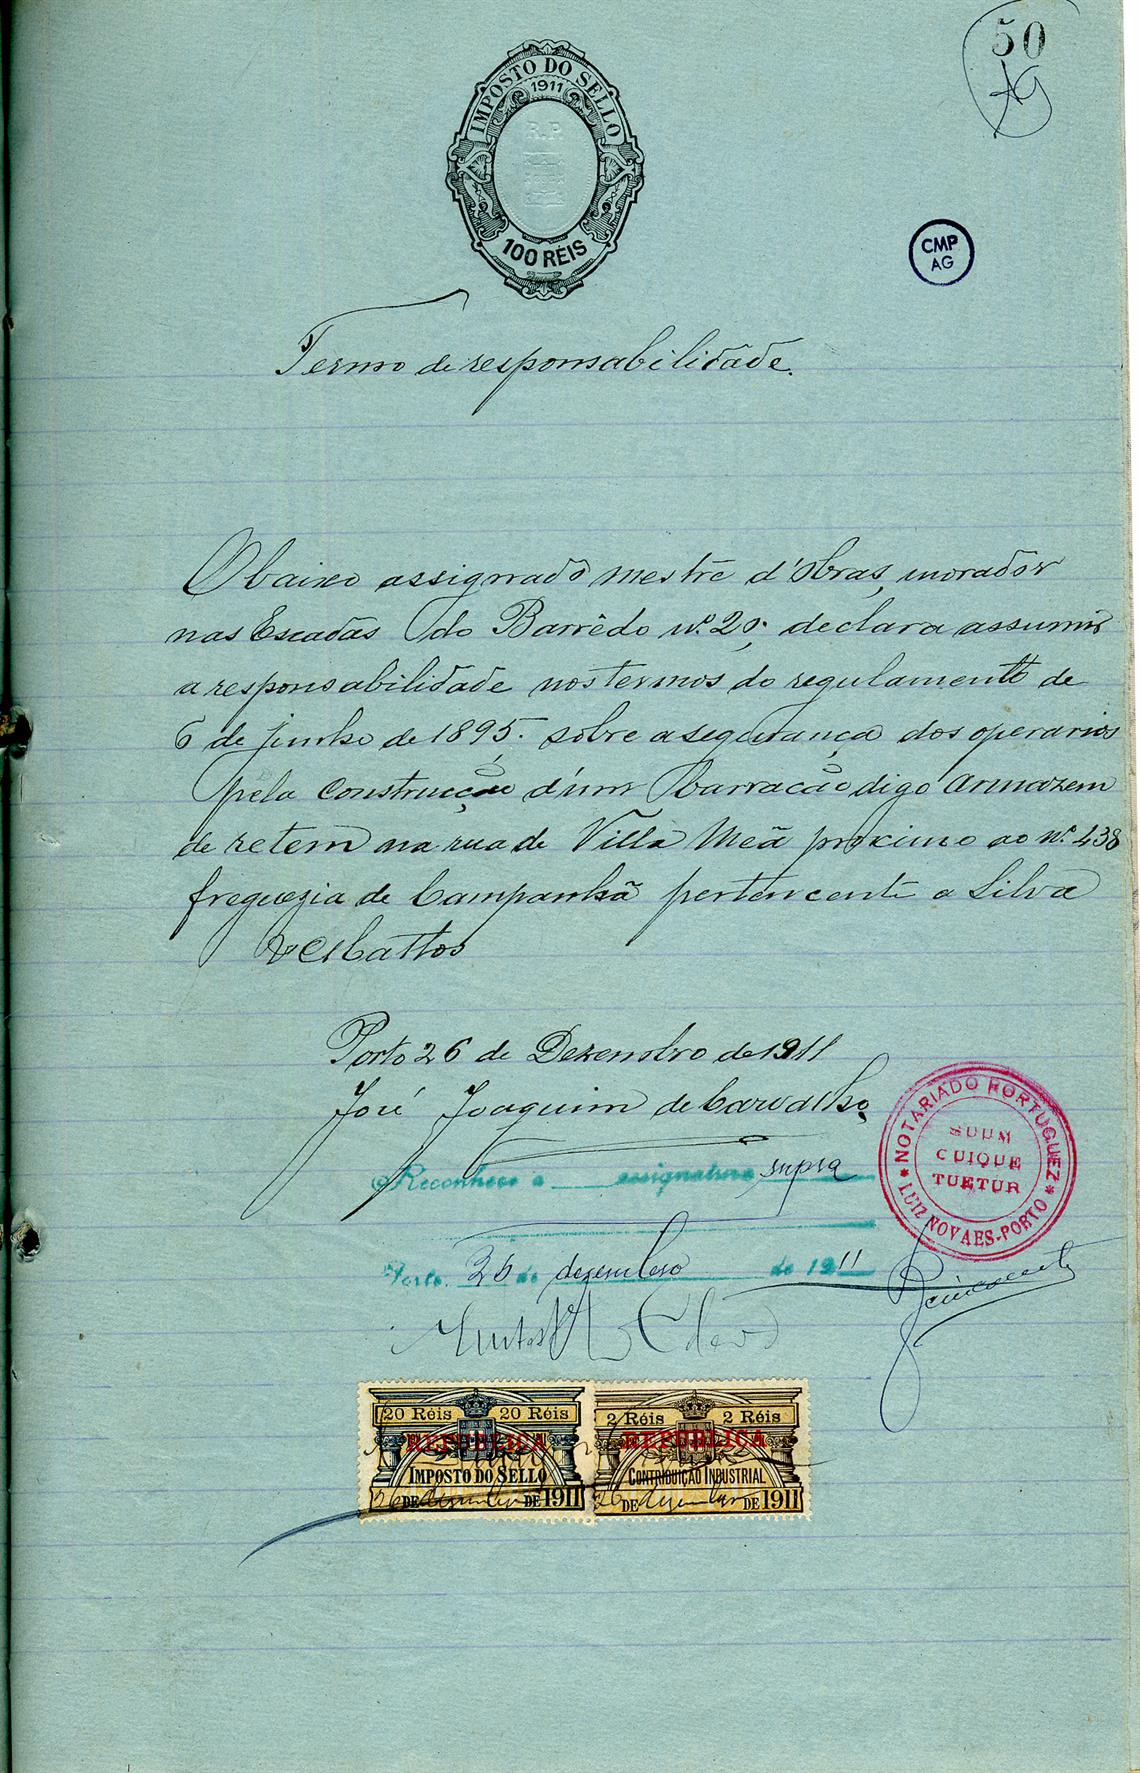 50
IMPOSTO DO SELLO
1911
R.P.
100 RÉIS
CMP
AG
Termo de responsabilidade.
O baixo assignado mestre d'obras, morador
nas Escadas do Barrêdo nº 20, declara assumir
a responsabilidade nos termos do regulamento de
6 de junho de 1895. sobre a segurança dos operarios
pela construcção d'um barracão digo Armazem
de retem na rua de Villa Meã proximo ao Nº 438
freguezia de Campanhã pertencente a Silva
& Mattos
Porto 26 de Dezembro de 1911
José Joaquim de Carvalho
Reconheço a assignatura supra
Porto, 26 de dezembro de 1911
NOTARIADO PORTUGUEZ
SUUM
CUIQUE
TUETUR
LUIZ NOVAES-PORTO
20 Réis 20 Réis
REPUBLICA
IMPOSTO DO SELLO
26 DE dezembro DE 1911
2 Réis 2 Réis
REPUBLICA
CONTRIBUIÇÃO INDUSTRIAL
26 DE dezembro DE 1911